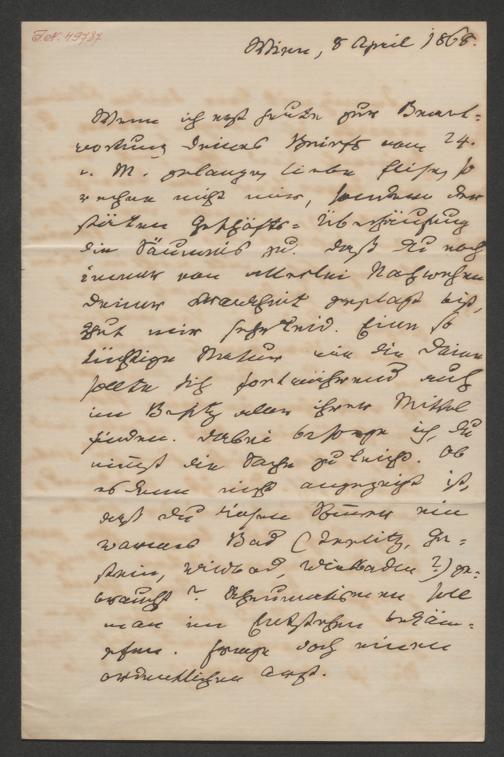 I.N. 49737
Wien, 8 April 1868.
Wenn ich erst heute zur Beant=
wortung Deines Briefs vom 24.
v. M. gelange, liebe Elise, so
rechne nicht mir, sondern der
steten Geschäfts=Überhäufung
die Säumnis zu. Daß Du noch
immer von allerlei Nachwehen
Deiner Krankheit geplagt bist,
thut mir sehr leid. Eine so
tüchtige Natur wie die Deine
sollte sich fortwährend auch
im Besitz aller ihrer Mittel
finden. Dabei besorge ich, Du
nimmst die Sache zu leicht. Ob
es denn nicht angezeigt ist,
daß Du diesen Sommer ein
warmes Bad (Teplitz, Ga=
stein, Wildbad, Wiesbaden?) ge=
brauchst? Rheumatismen soll
man im Entstehen bekäm=
pfen. Frage doch einen
ordentlichen Arzt.